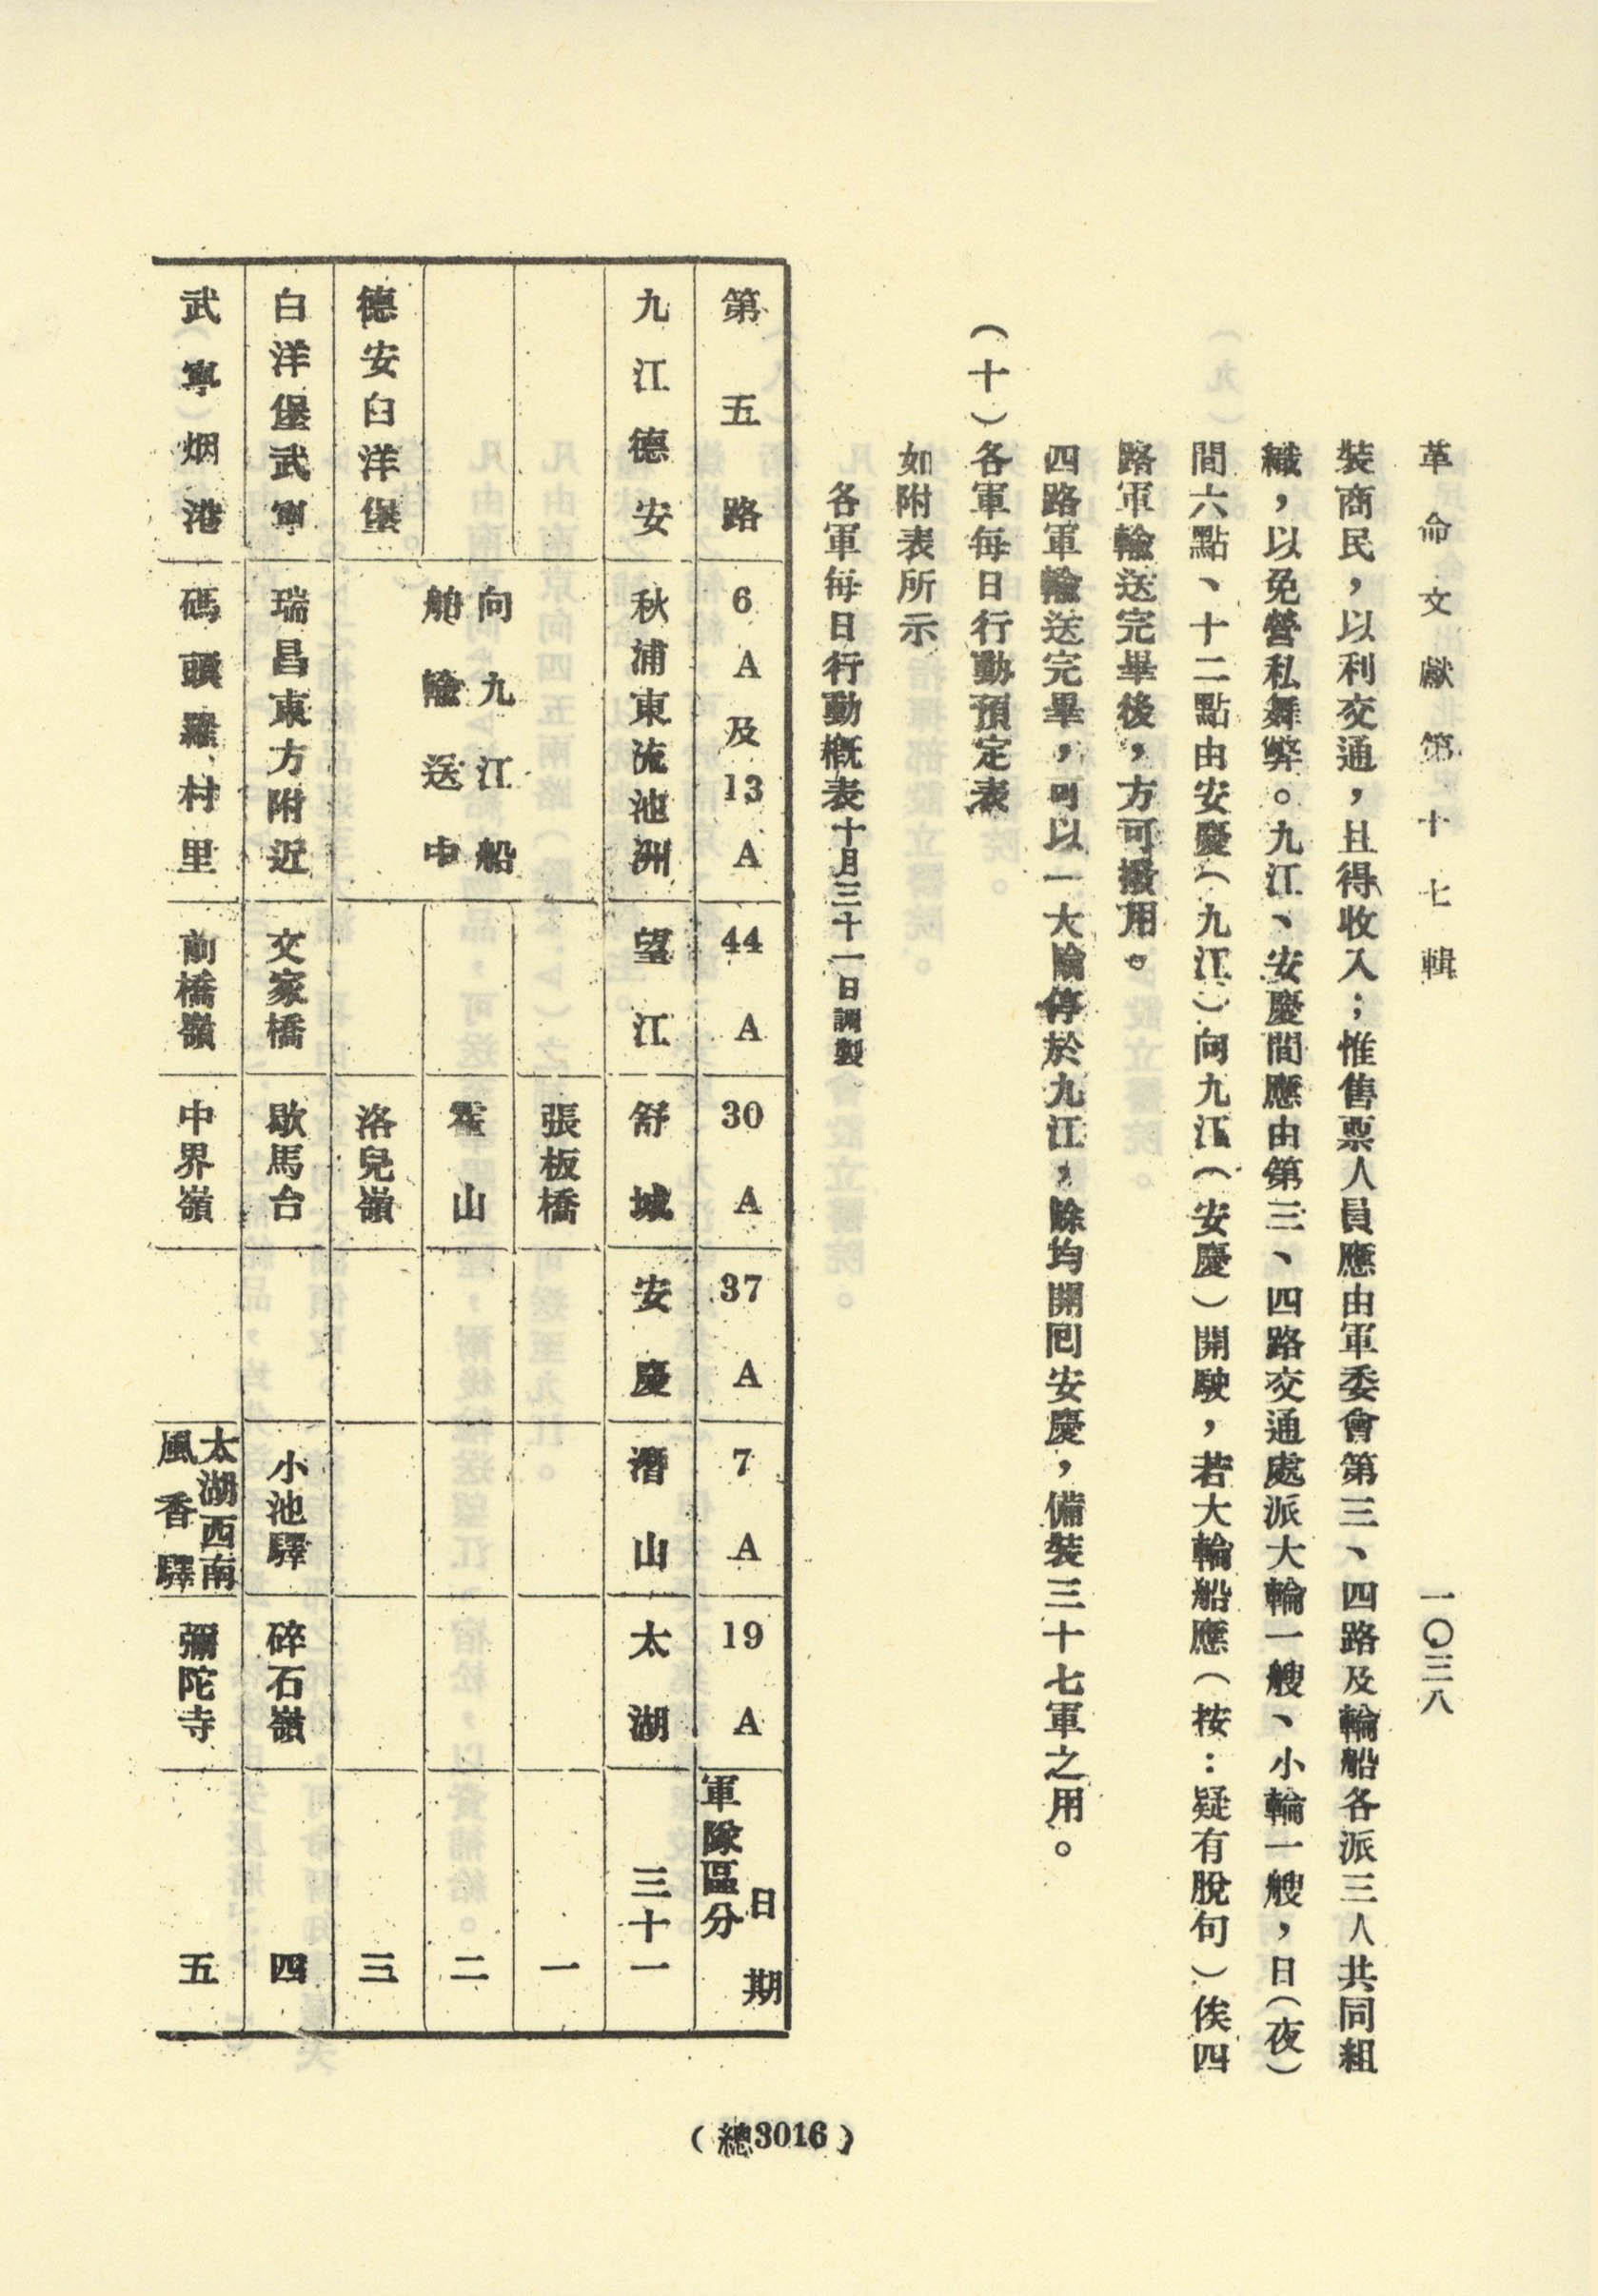 革命文獻第十七輯
一〇三八
裝商民，以利交通，且得收入；惟售票人員應由軍委會第三、四路及輪船各派三人共同組
織，以免營私舞弊。九江、安慶間應由第三、四路交通處派大輪一艘、小輪一艘，日（夜）
間六點、十二點由安慶（九江）向九江（安慶）開駛，若大輪船應（按：疑有脫句）俟四
路軍輸送完畢後，方可撥用。
四路軍輸送完畢，可以一大輪停於九江，餘均開囘安慶，備裝三十七軍之用。
（十）各軍每日行動預定表
如附表所示
各軍每日行動概表十月三十一日調製
第五路
6A及13A
44A
30A
37A
7A
19A
軍隊區分
日期
九江德安
秋浦東流池洲
望江
舒城
安慶
潛山
太湖
三十一
向九江船
舶輸送中
張板橋
一
霍山
二
德安白洋堡
洛兒嶺
三
白洋堡武寧
瑞昌東方附近
交家橋
歇馬台
小池驛
碎石嶺
四
武寧烟港
碼頭羅村里
前橋嶺
中界嶺
太湖西南
風香驛
彌陀寺
五
（總3016）